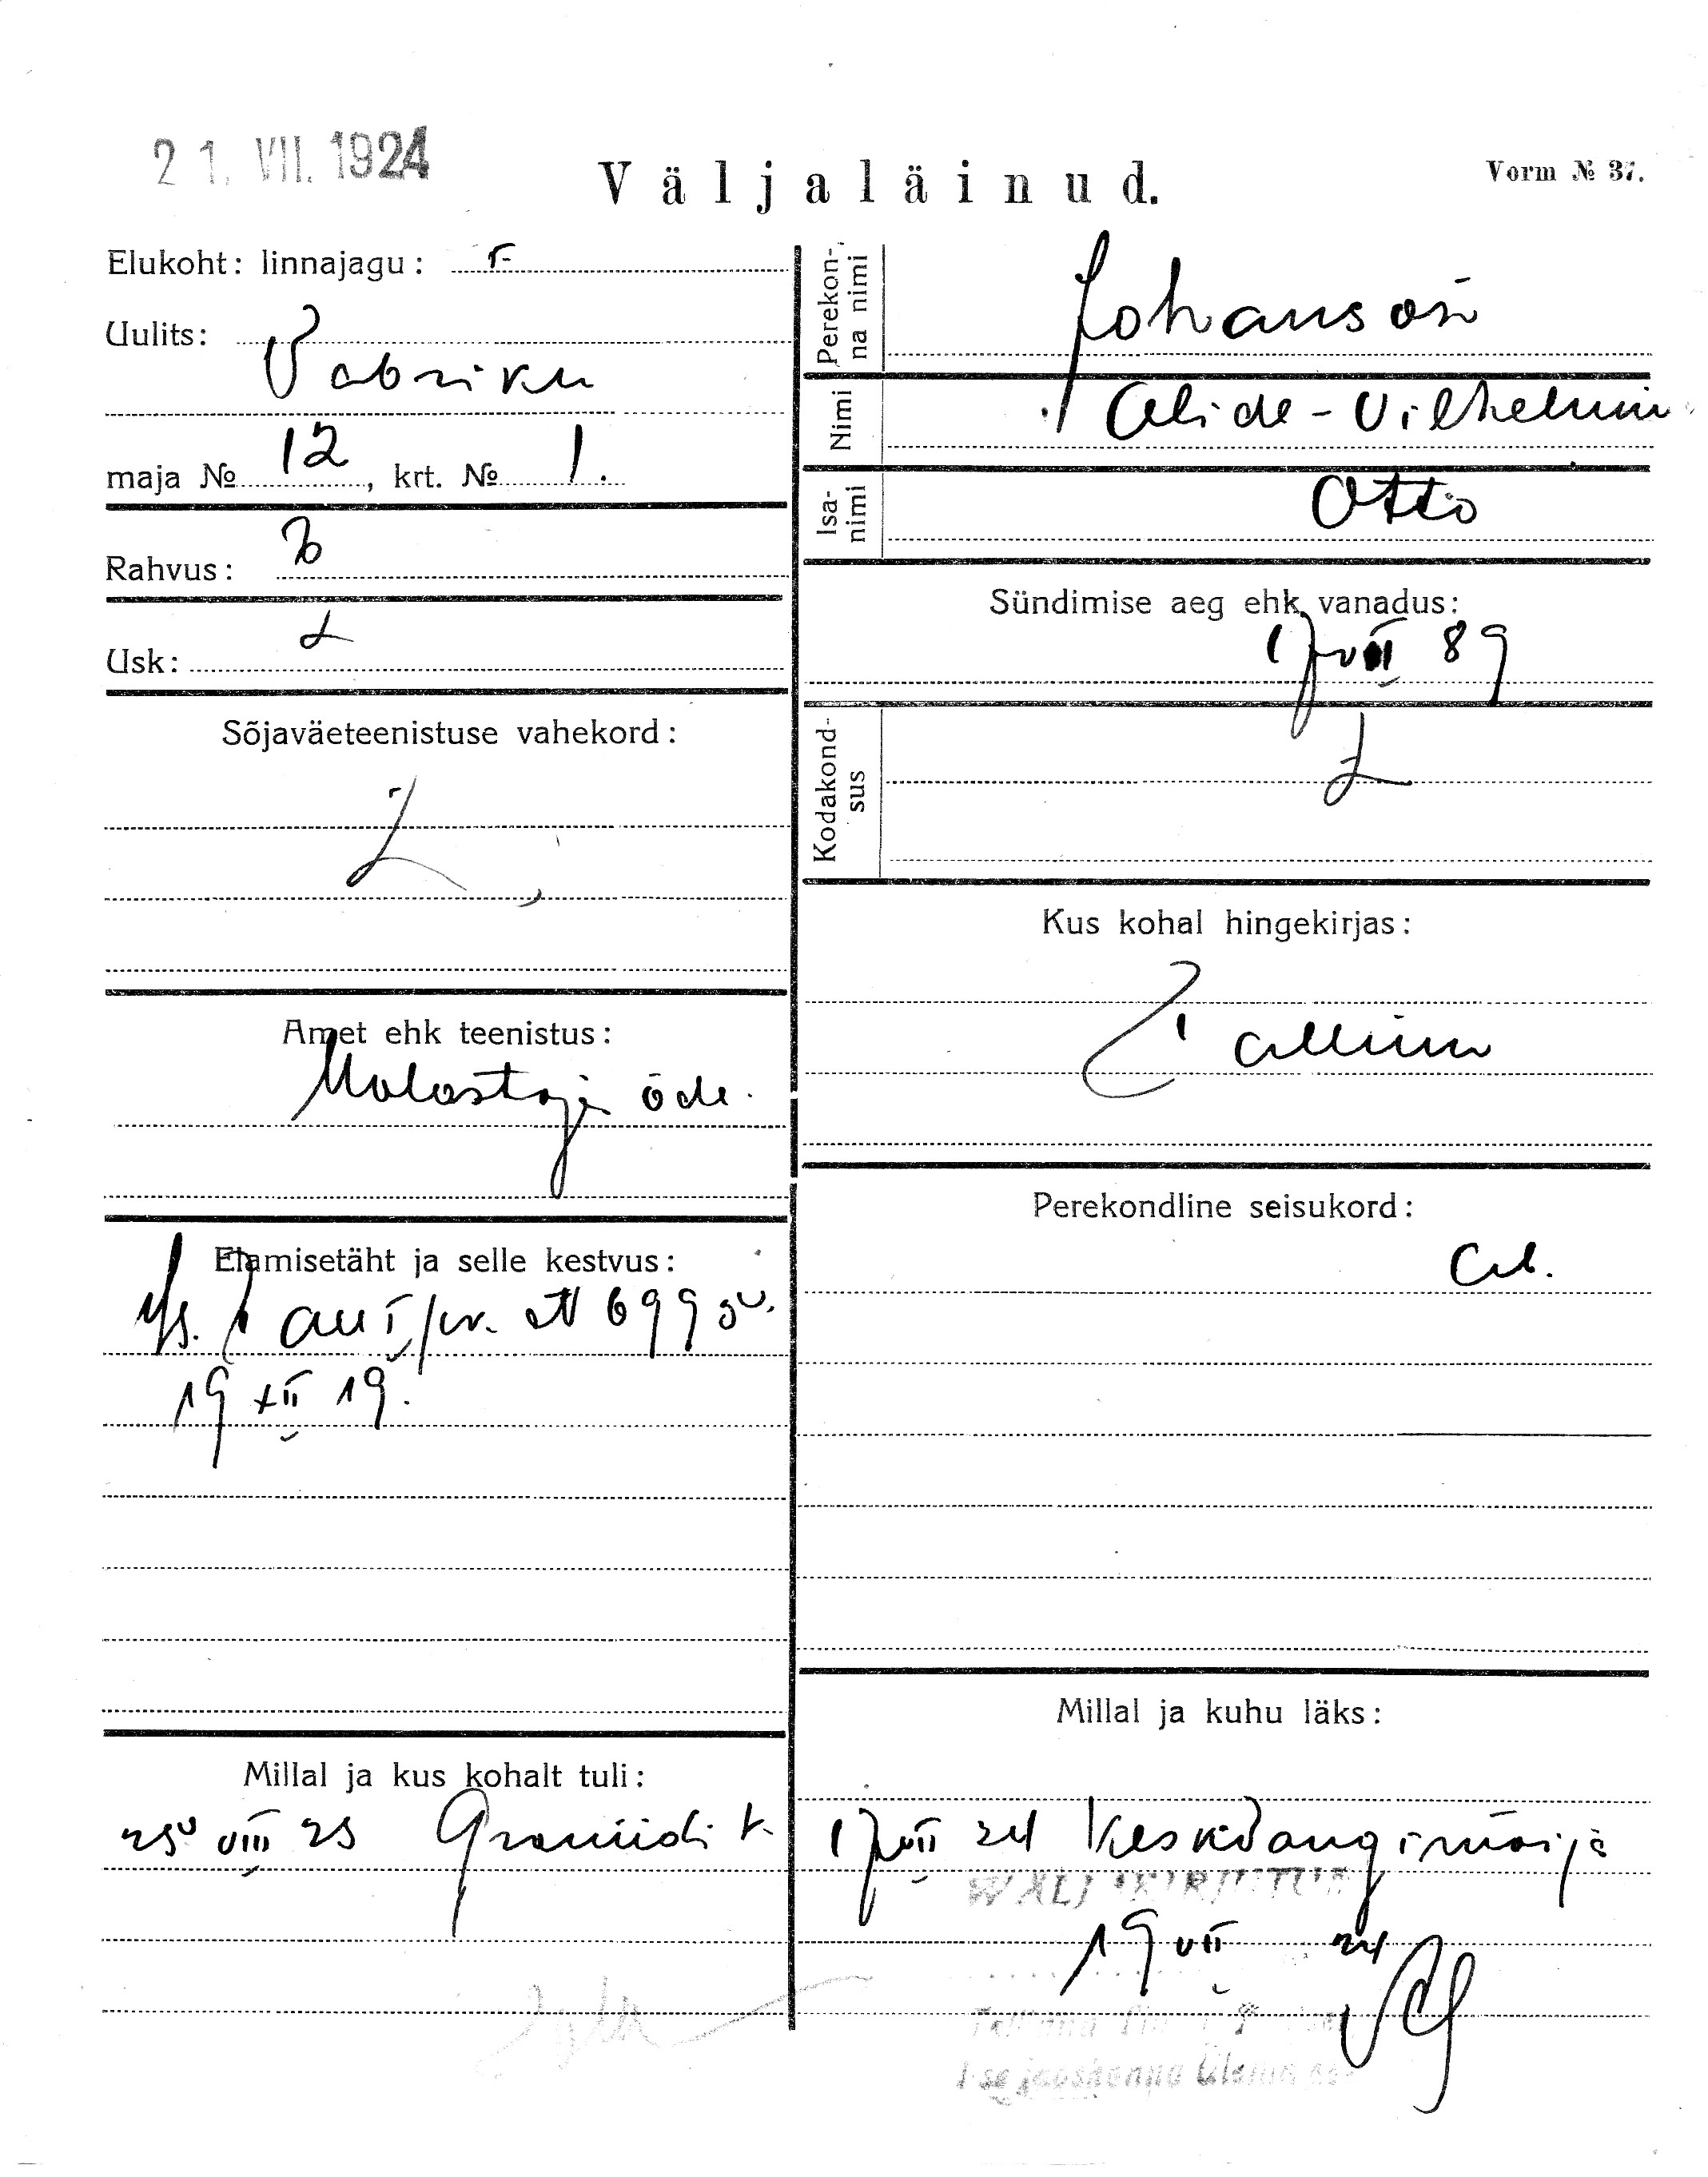 21. VII. 1924
Väljaläinud.
Vorm № 37.
Elukoht: linnajagu: I
Uulits:
Vabriku
maja № 12, krt. № 1.
Rahvus:
Usk: L
Sõjaväeteenistuse vahekord:
Amet ehk teenistus:
Halastaja õde.
Elamisetäht ja selle kestvus:
Tall I jsk. № 699
19 XII 19.
Millal ja kus kohalt tuli:
25 VIII 23 Graniidi t.
Perekon-
na nimi
Johanson
Nimi
Alide-Vilhelmin
Isa-
nimi
Otto
Sündimise aeg ehk vanadus:
17 VII 89
Kodakond-
sus
Kus kohal hingekirjas:
Tallinn
Perekondline seisukord:
Millal ja kuhu läks:
17 VII 24
WÄLJAKIRJUTUD
19 VII 24
I-se jaoskonna ülema